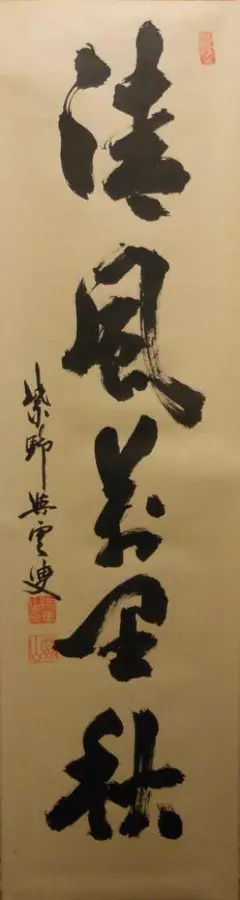 清風萬里秋
紫野興雲叟